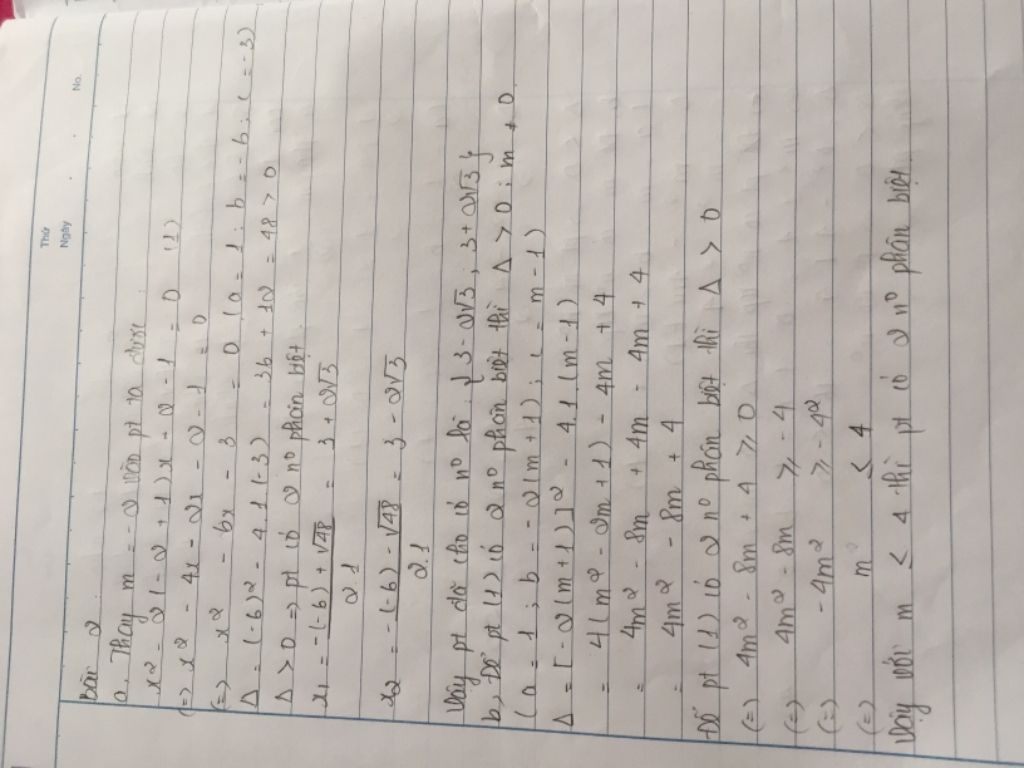 Thứ
Ngày
No.
Bài 2
a. Thay m = -2 vào pt ta được
x² - 2(-2+1)x - 2 - 1 = 0 (1)
(=) x² - 4x - 2x - 2 - 1 = 0
(=) x² - 6x - 3 = 0 (a = 1; b = -6; c = -3)
Δ = (-6)² - 4.1(-3) = 36 + 12 = 48 > 0
Δ > 0 => pt có 2 nº phân biệt.
x1 = -(-6) + √48 / 2.1 = 3 + 2√3
x2 = -(-6) - √48 / 2.1 = 3 - 2√3
Vậy pt đã cho có nº là: { 3 - 2√3; 3 + 2√3 }
b, Để pt (1) có 2 nº phân biệt thì Δ > 0; m ≠ 0
(a = 1; b = -2(m+1); c = m-1)
Δ = [-2(m+1)]² - 4.1.(m-1)
= 4(m² - 2m + 1) - 4m + 4
= 4m² - 8m + 4m - 4m + 4
= 4m² - 8m + 4
Để pt (1) có 2 nº phân biệt thì Δ > 0
(=) 4m² - 8m + 4 ≥ 0
(=) 4m² - 8m ≥ -4
(=) -4m² ≥ -4²
(=) m ≤ 4
Vậy với m ≤ 4 thì pt có 2 nº phân biệt.